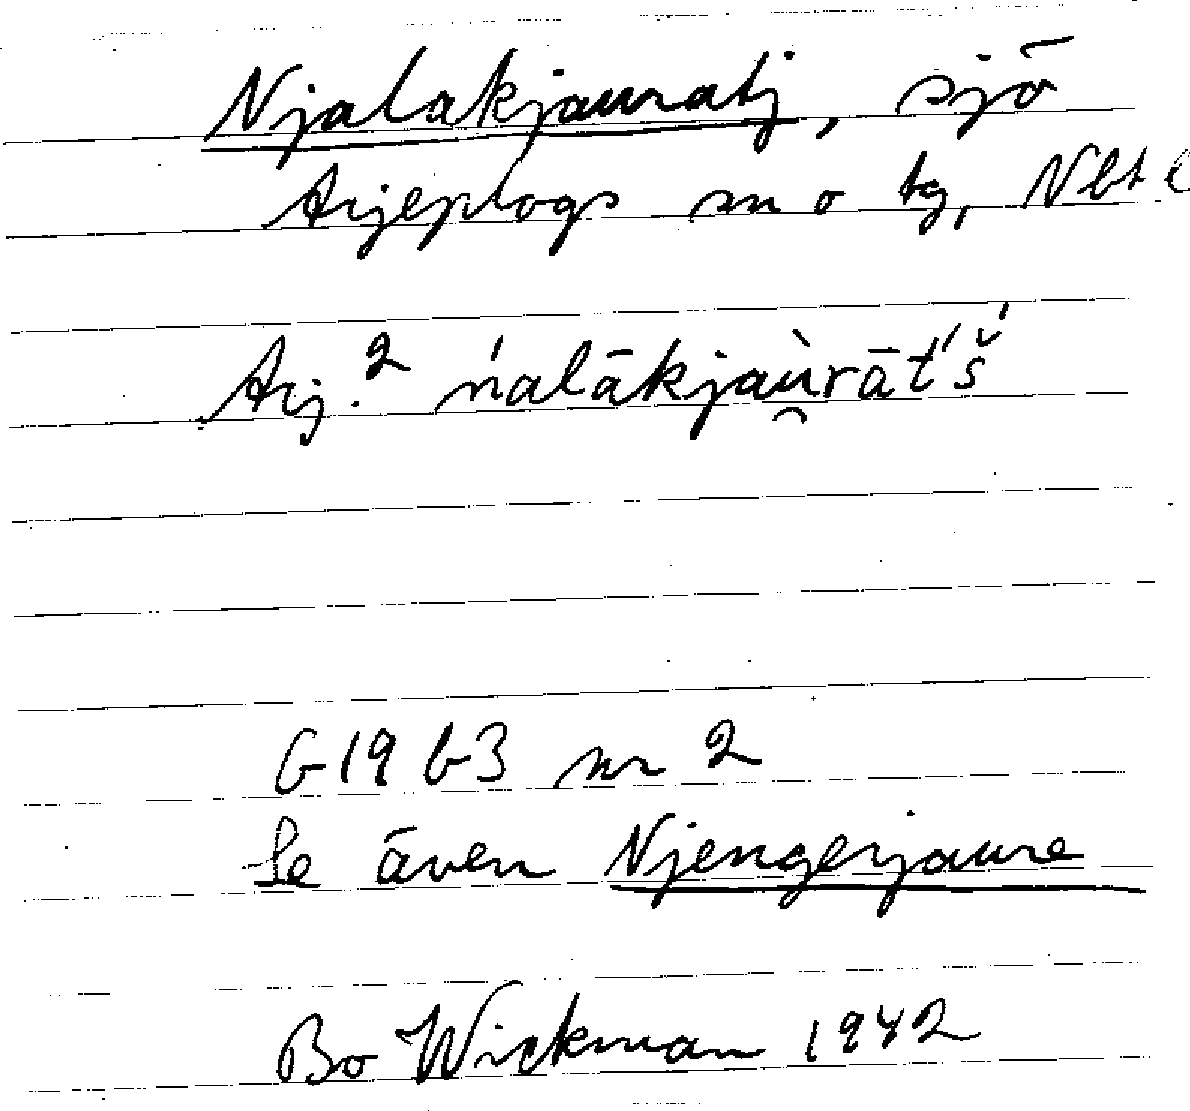 Njalakjauratj, sjö
Arjeplogs sn o tg, Nbt l
Arj.² ńalākjaù̯rāt́'š́
G19 63 nr 2
Se även Njengerjaure
Bo Wickman 1942